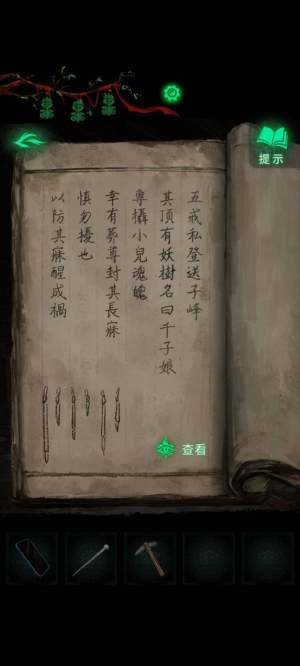 提示
五戒私登送子峰
其頂有妖樹名曰千子娘
專攝小兒魂魄
幸有夢尊封其長寐
慎勿擾也
以防其寐醒成禍
查看